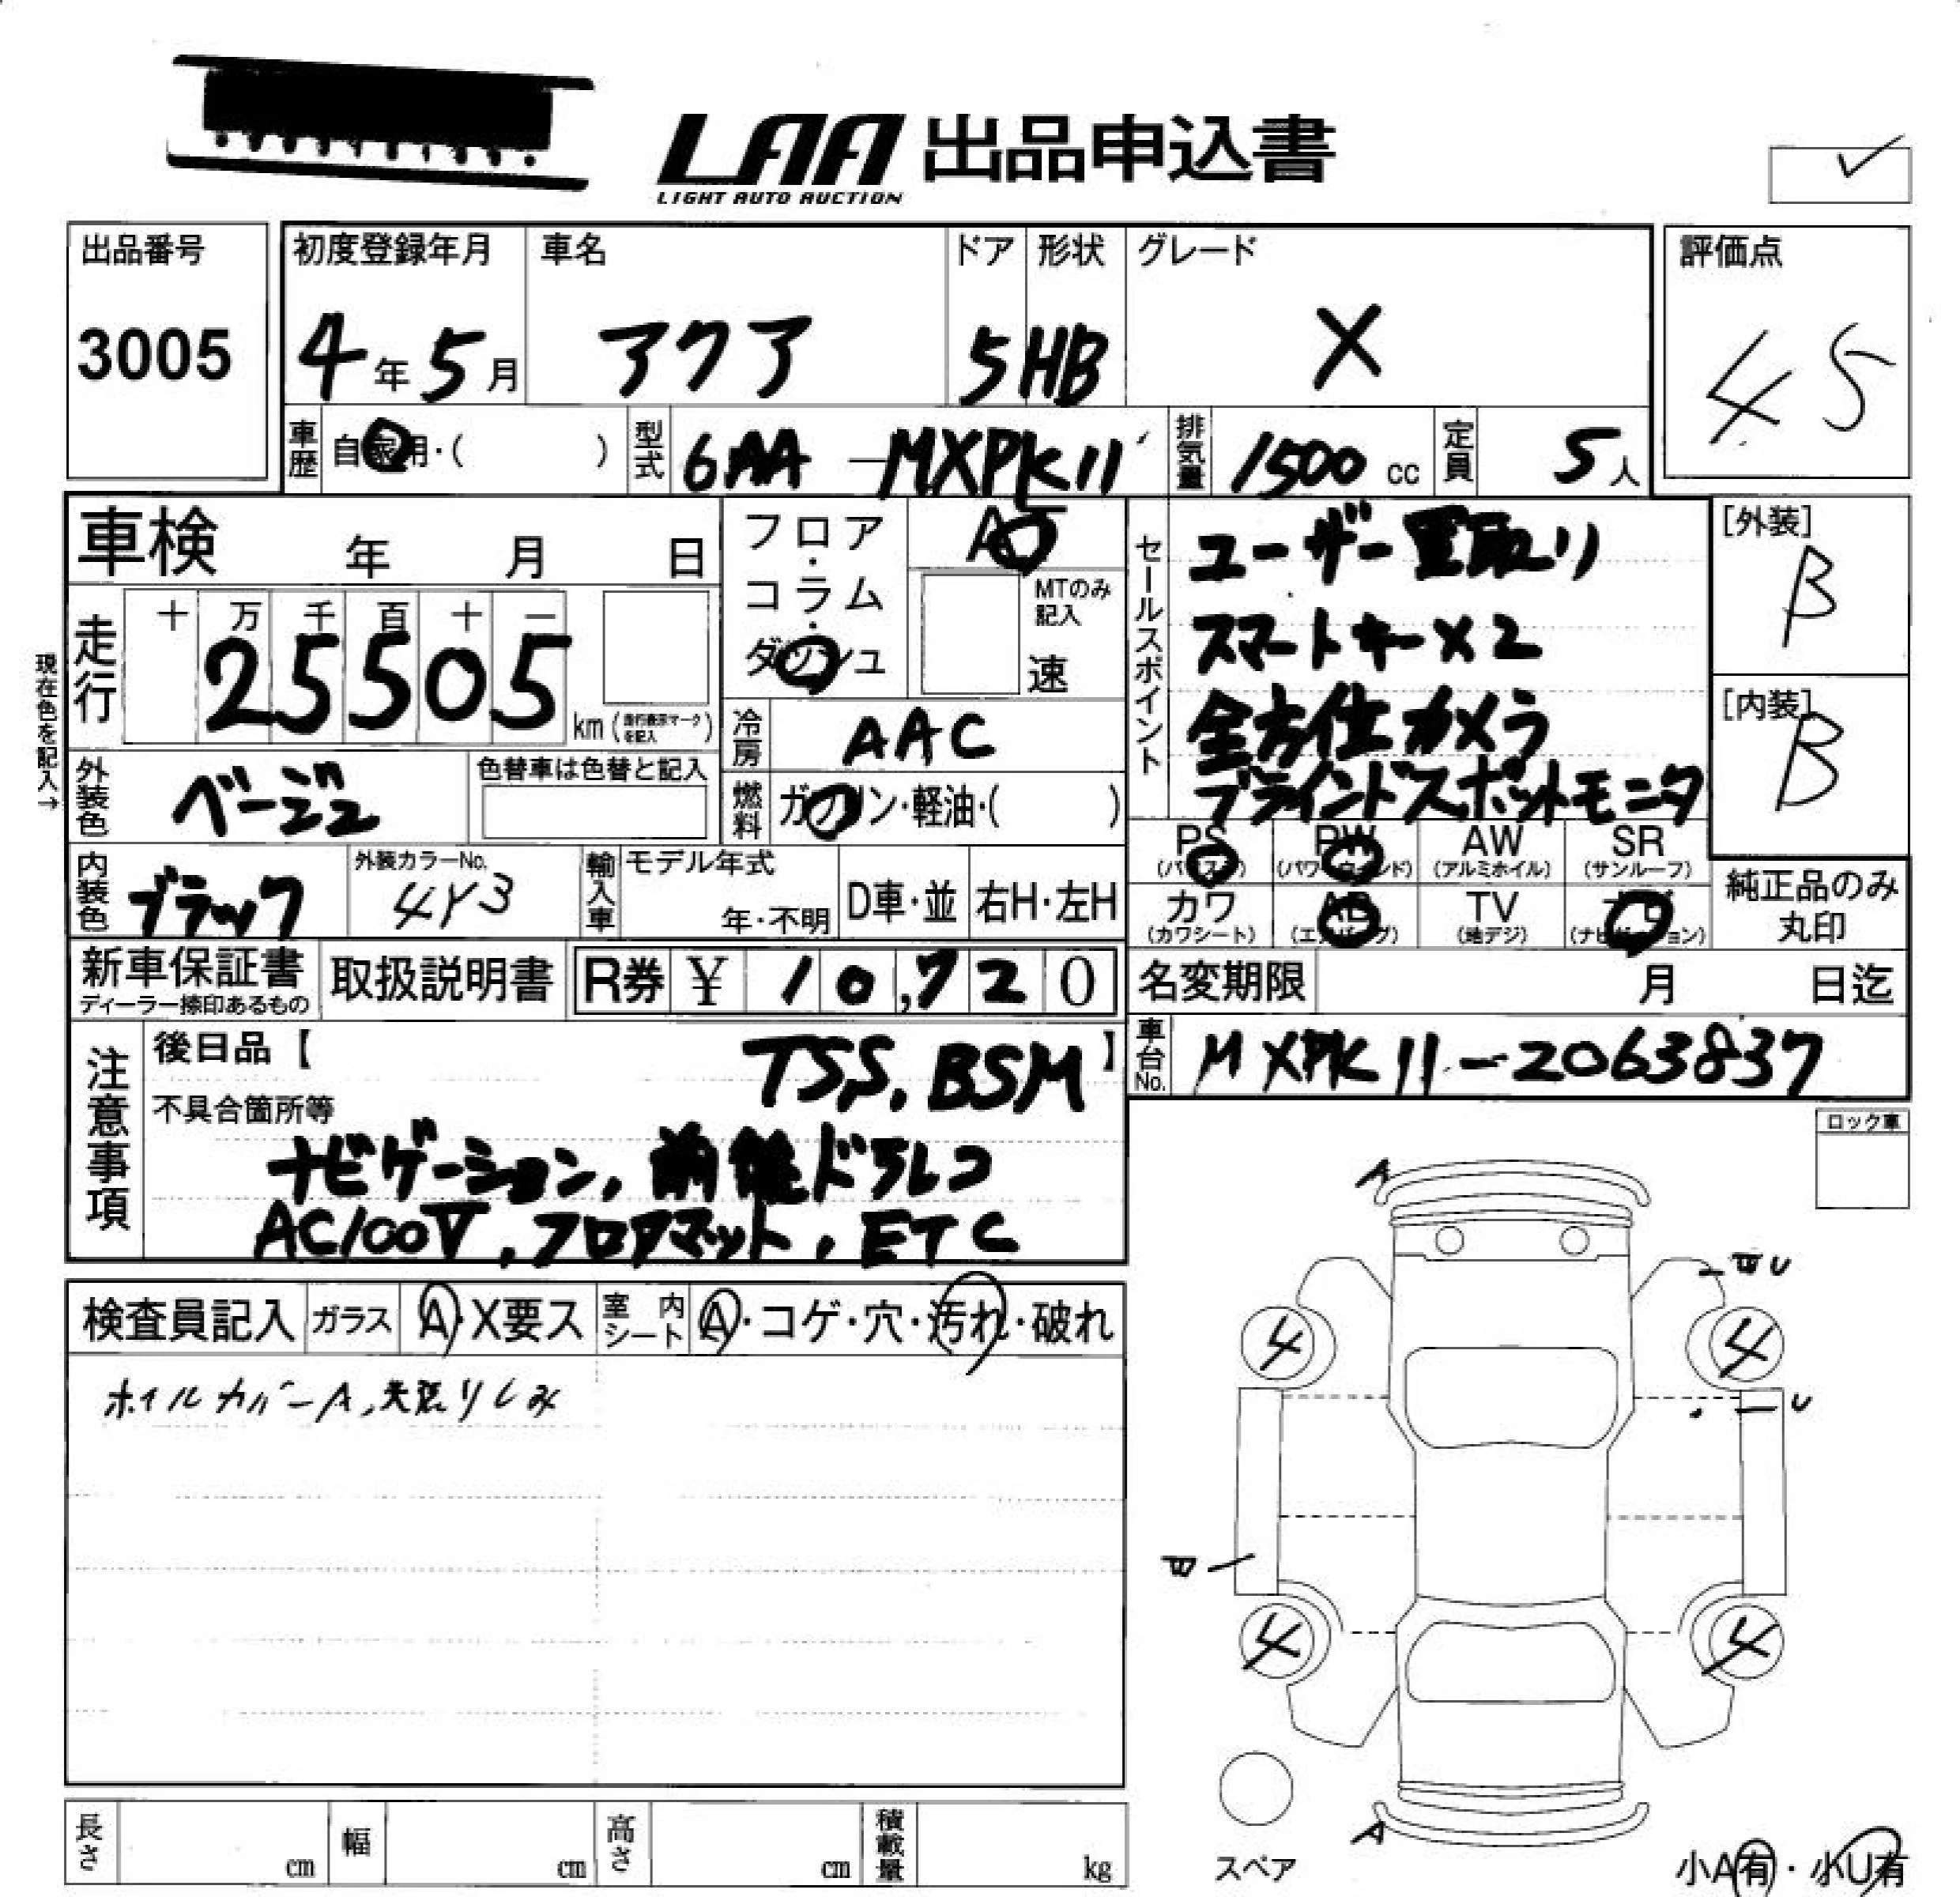 LAA 出品申込書
LIGHT AUTO AUCTION
出品番号
3005
初度登録年月
4年5月
車名
アクア
ドア
5
形状
HB
グレード
X
評価点
4 5
車歴
自家用・( )
型式
6AA-MXPK11
排気量
1500 cc
定員
5人
車検 年 月 日
現在色を記入→
走行
十 万 千 百 十 一
25505
km (走行表示マークを記入)
フロア・コラム・ダッシュ
AT
MTのみ記入
速
冷房
AAC
燃料
ガソリン・軽油・( )
外装色
ベージュ
色替車は色替と記入
内装色
ブラック
外装カラーNo.
4Y3
輸入車
モデル年式
年・不明
D車・並
右H・左H
セールスポイント
ユーザー買取り
スマートキー×2
全方位カメラ
ブラインドスポットモニタ
[外装]
B
[内装]
B
PS
(パワステ)
PW
(パワーウインド)
AW
(アルミホイル)
SR
(サンルーフ)
カワ
(カワシート)
AB
(エアバッグ)
TV
(地デジ)
ナビ
(ナビゲーション)
純正品のみ
丸印
新車保証書
ディーラー捺印あるもの
取扱説明書
R券 ¥ 10,720
名変期限 月 日迄
車台No.
MXPK11-2063837
注意事項
後日品【 】
TSS, BSM
不具合箇所等
ナビゲーション, 前後ドラレコ
AC100V, フロアマット, ETC
ロック車
検査員記入
ガラス
A・X要ス
室内シート
A・コゲ・穴・汚れ・破れ
ホイルカバーA, 天張りしみ
A
U
4
4
U
4
4
A
スペア
小A有・小U有
長さ cm
幅 cm
高さ cm
積載量 kg